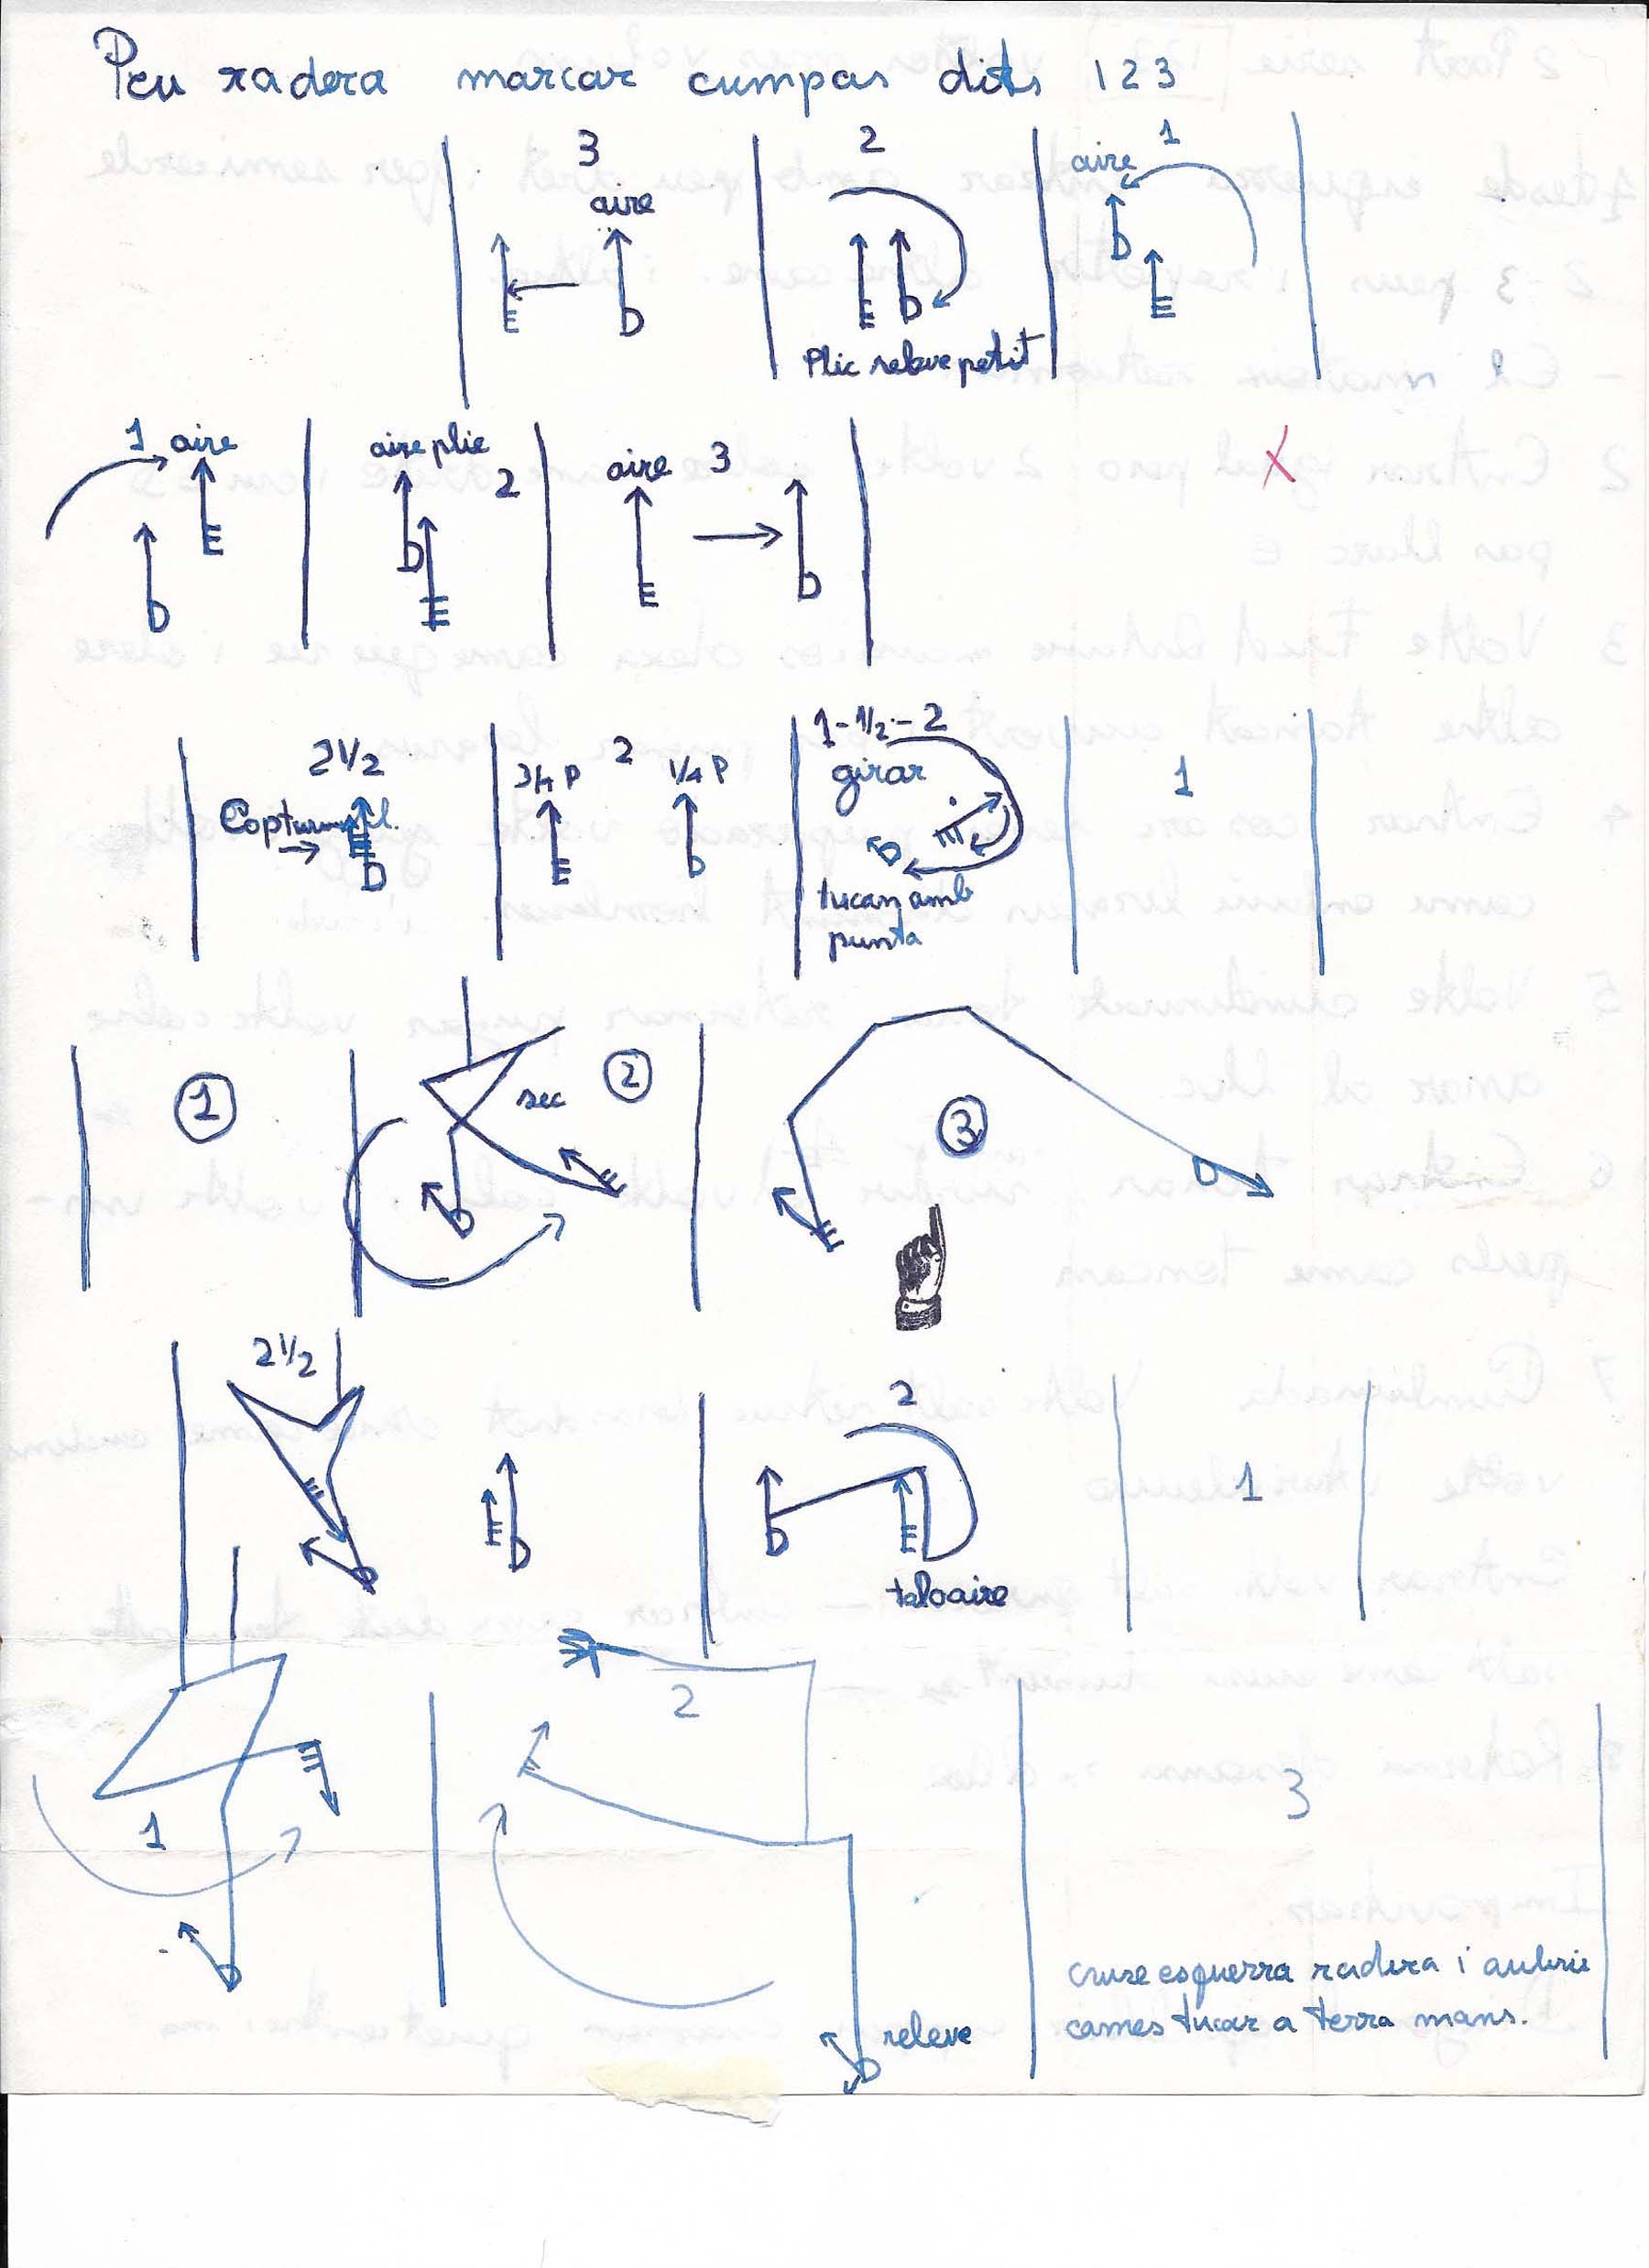 Peu radera marcar cumpas dits 1 2 3
3 2 1
aire aire
E D E D D E
Plie releve petit
1 aire aire plie 2 aire 3
D E D E E D
2 1/2 3/4 P 2 1/4 P 1-1/2-2 1
girar
E D E D D E
tucan amb
punta
1 2 3
sec
D E E D
2 1/2 2 1
E D E D D E
taloaire
1 2 3
E D E D
cruze esquerra radera i aubrir
releve cames tucar a terra mans.